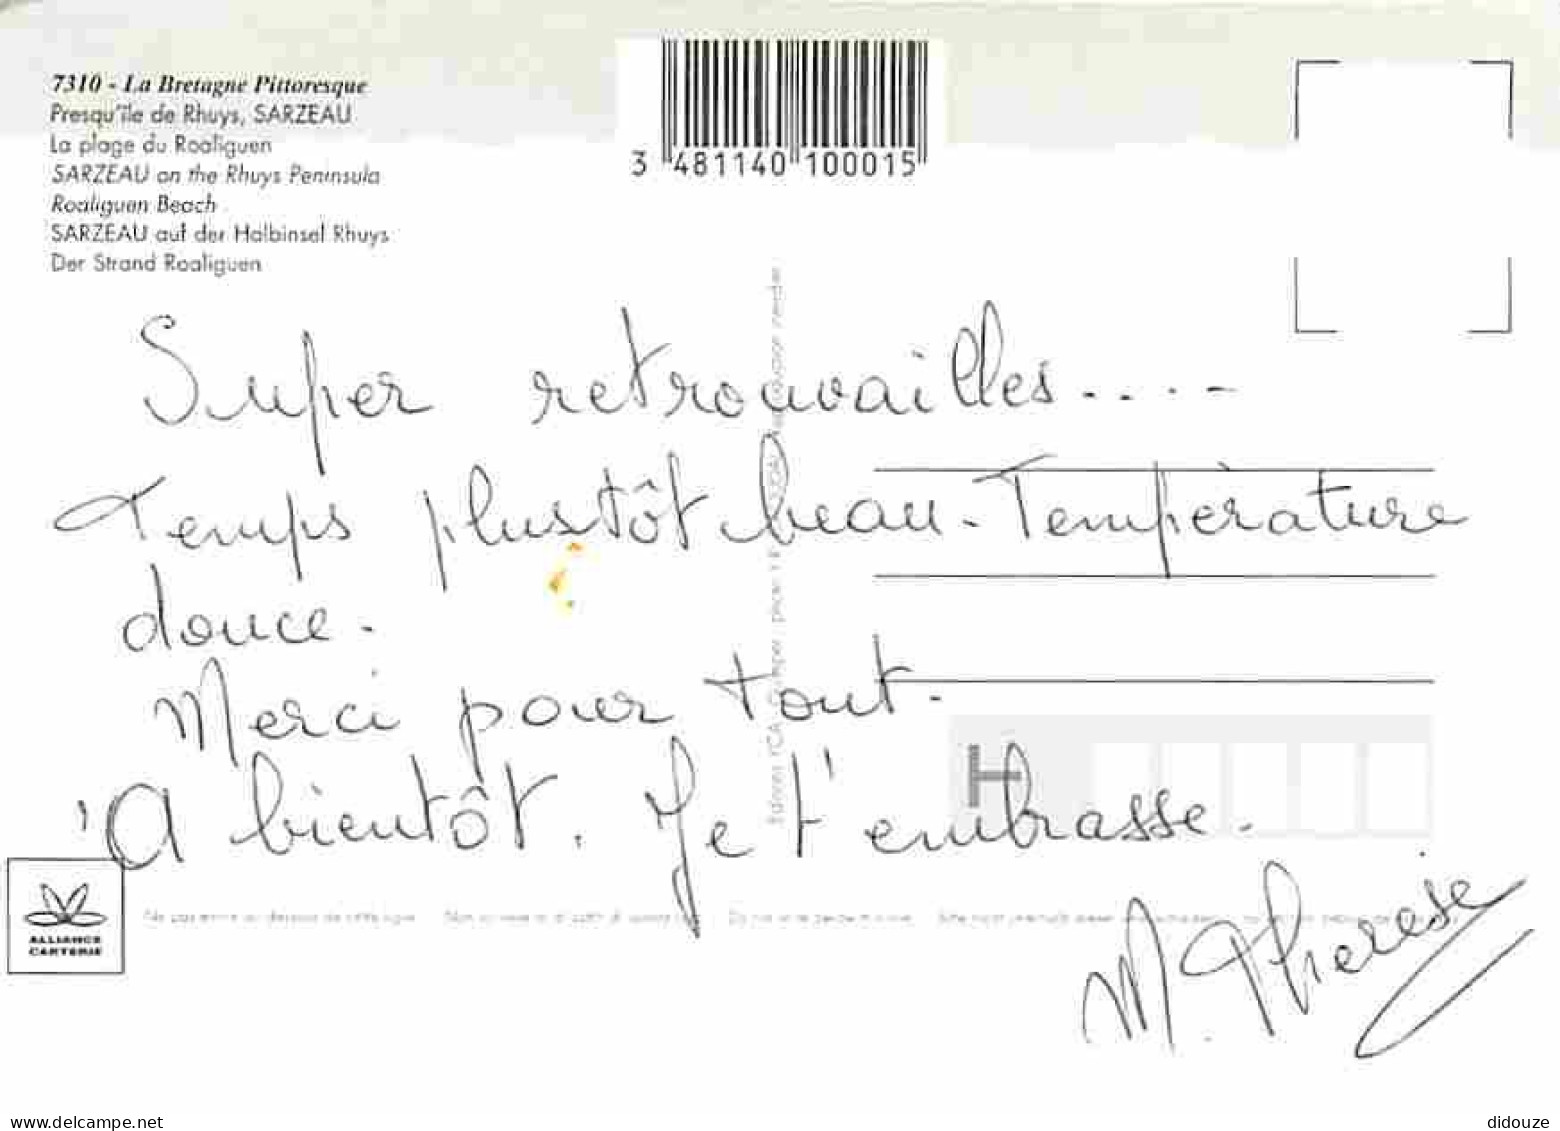 7310 - La Bretagne Pittoresque
Presqu'île de Rhuys, SARZEAU
La plage du Roaliguen
SARZEAU on the Rhuys Peninsula
Roaliguen Beach
SARZEAU auf der Halbinsel Rhuys
Der Strand Roaliguen
3 481140 100015
Super retrouvailles....
Temps plustôt beau - Température
douce.
Merci pour tout.
A bientôt. Je t'embrasse.
M. Thérèse
H
ALLIANCE
CARTERIE
delcampe.net
didouze